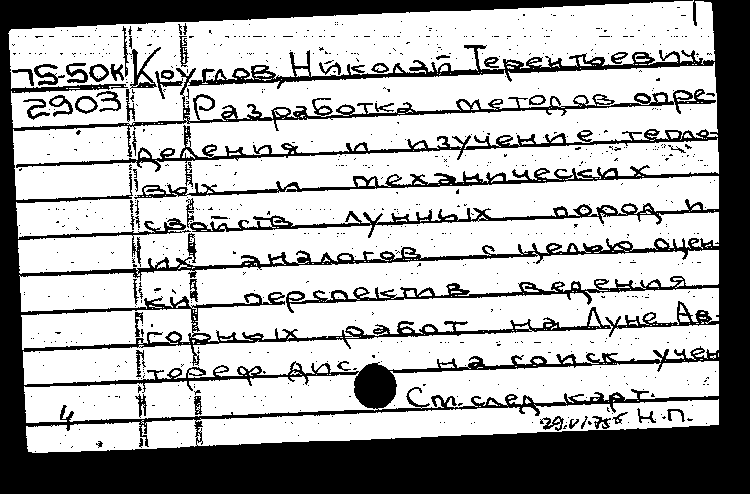 75-50к Круглов, Николай Терентьевич.
2903 Разработка методов опре-
деления и изучение тепло-
вых и механических
свойств лунных пород и
их аналогов с целью оцен-
ки перспектив ведения
горных работ на Луне Ав-
тореф. дис. на соиск. учен
См. след. карт.
4 29.VI.75г Н.П.